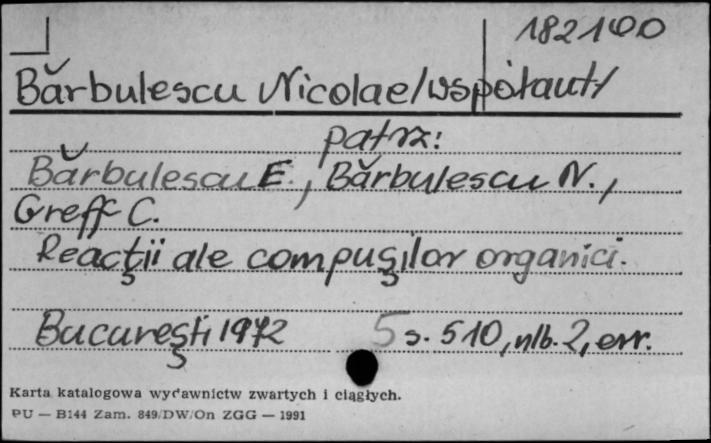 182100
Bărbulescu Nicolae/współaut/
patrz:
Bărbulescu E., Bărbulescu N.,
Greff C.
Reacţii ale compuşilor organici.
Bucureşti 1972 5 s. 510, nlb. 2, err.
Karta katalogowa wydawnictw zwartych i ciągłych.
PU — B144 Zam. 849/DW/On ZGG — 1991